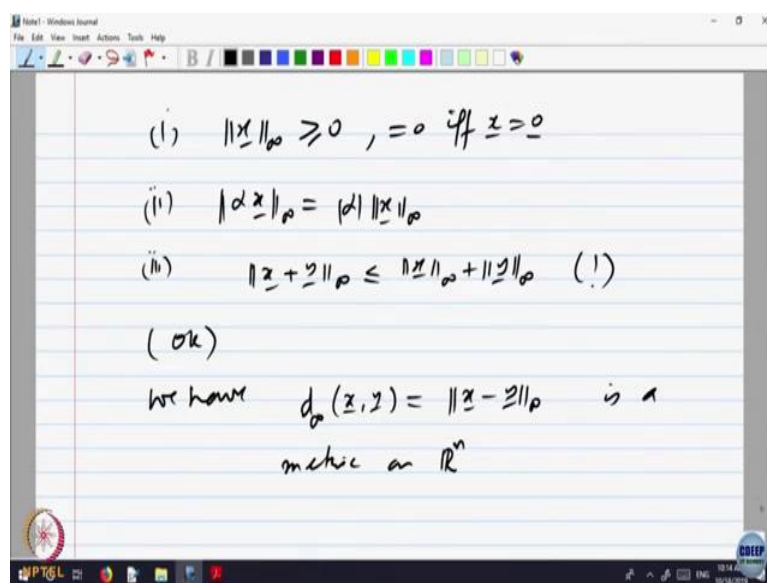 Note1 - Windows Journal
File Edit View Insert Actions Tools Help
B I
(i) ||x||∞ ≥ 0 , = 0 iff x = 0
(ii) ||αx||∞ = |α| ||x||∞
(iii) ||x + y||∞ ≤ ||x||∞ + ||y||∞ (!)
(ok)
We have d∞(x, y) = ||x - y||∞ is a
metric on ℝⁿ
NPTEL
CDEEP
ENG